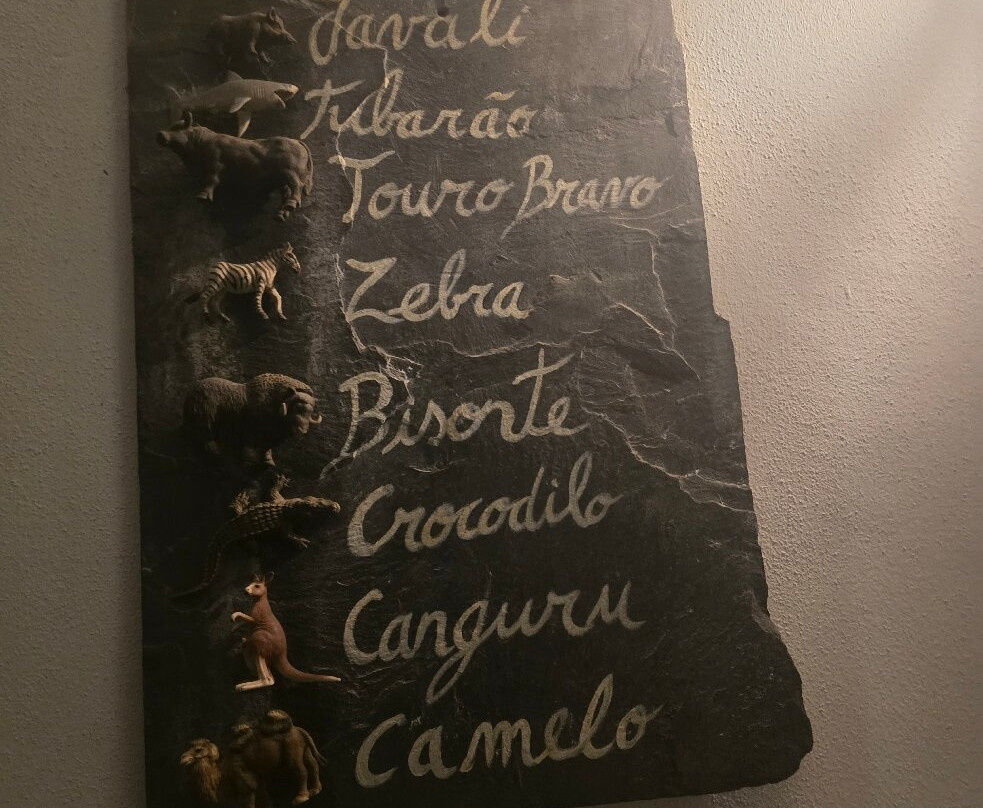 Javali
Tubarão
Touro Bravo
Zebra
Bisonte
Crocodilo
Canguru
Camelo